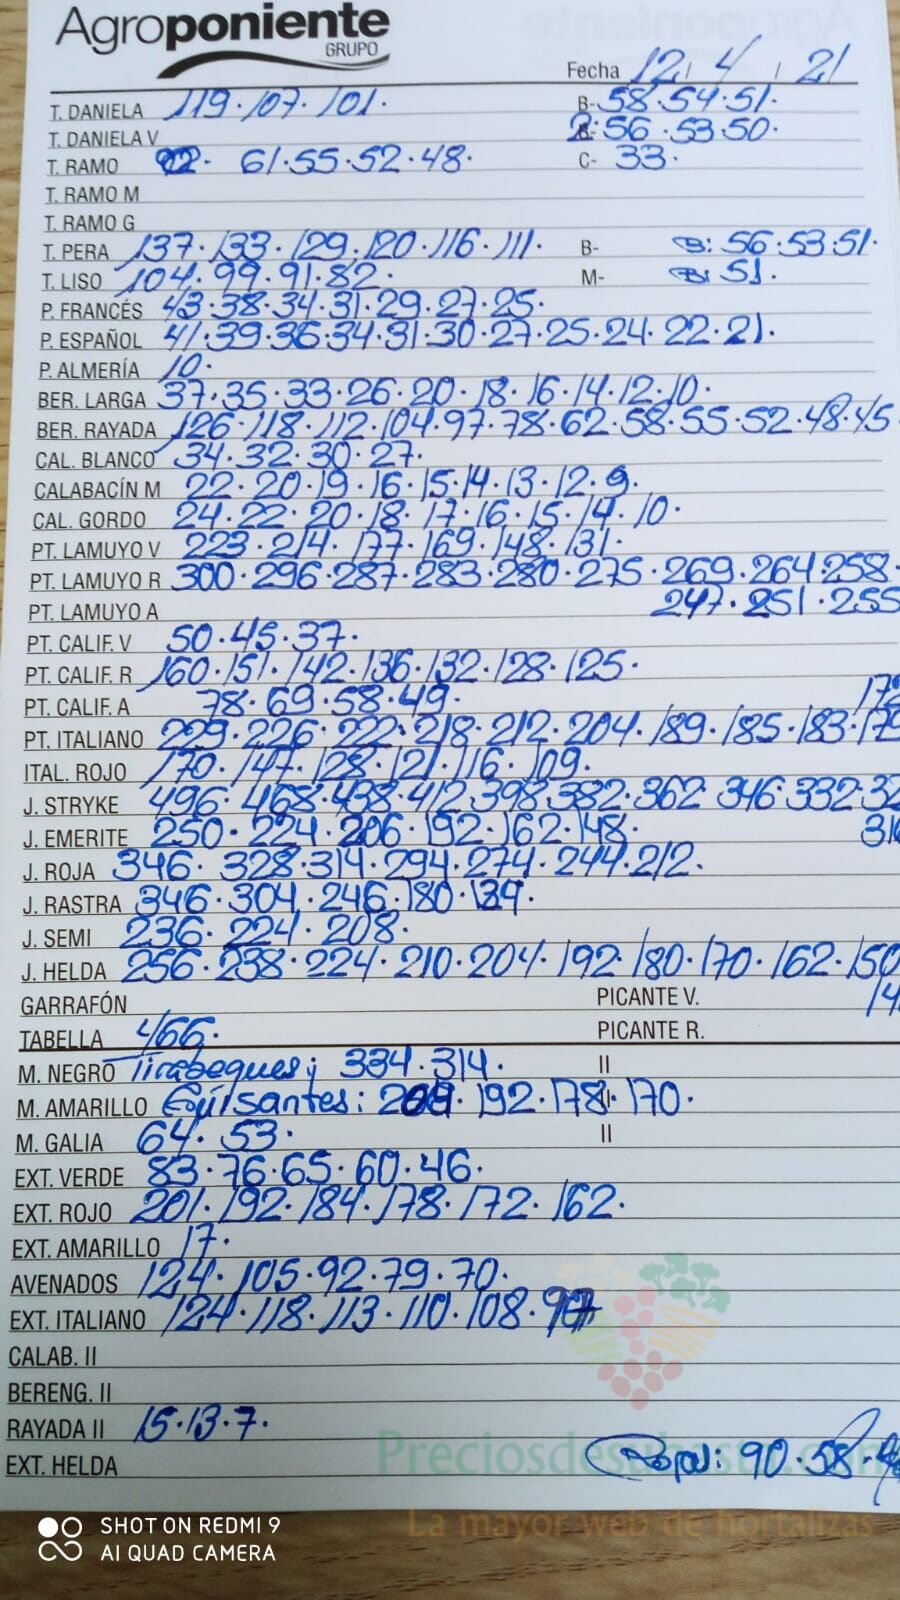 Agroponiente
GRUPO
Fecha 12 / 4 / 21
T. DANIELA 119 · 107 · 101 · B- 58 · 54 · 51 ·
T. DANIELA V 2: 56 · 53 · 50 ·
T. RAMO 61 · 55 · 52 · 48 · C- 33 ·
T. RAMO M
T. RAMO G
T. PERA 137 · 133 · 129 · 120 · 116 · 111 · B- B: 56 · 53 · 51 ·
T. LISO 104 · 99 · 91 · 82 · M- B: 51 ·
P. FRANCÉS 43 · 38 · 34 · 31 · 29 · 27 · 25 ·
P. ESPAÑOL 41 · 39 · 36 · 34 · 31 · 30 · 27 · 25 · 24 · 22 · 21 ·
P. ALMERÍA 10 ·
BER. LARGA 37 · 35 · 33 · 26 · 20 · 18 · 16 · 14 · 12 · 10 ·
BER. RAYADA 126 · 118 · 112 · 104 · 97 · 78 · 62 · 58 · 55 · 52 · 48 · 45 ·
CAL. BLANCO 34 · 32 · 30 · 27 ·
CALABACÍN M 22 · 20 · 19 · 16 · 15 · 14 · 13 · 12 · 9 ·
CAL. GORDO 24 · 22 · 20 · 18 · 17 · 16 · 15 · 14 · 10 ·
PT. LAMUYO V 223 · 214 · 177 · 169 · 148 · 131 ·
PT. LAMUYO R 300 · 296 · 287 · 283 · 280 · 275 · 269 · 264 · 258 ·
PT. LAMUYO A 247 · 251 · 255
PT. CALIF. V 50 · 45 · 37 ·
PT. CALIF. R 160 · 151 · 142 · 136 · 132 · 128 · 125 ·
PT. CALIF. A 78 · 69 · 58 · 49 ·
PT. ITALIANO 229 · 226 · 222 · 218 · 212 · 204 · 189 · 185 · 183 ·
ITAL. ROJO 170 · 147 · 128 · 121 · 116 · 109 ·
J. STRYKE 496 · 468 · 438 · 412 · 398 · 382 · 362 · 346 · 332 ·
J. EMERITE 250 · 224 · 206 · 192 · 162 · 148 ·
J. ROJA 346 · 328 · 314 · 294 · 274 · 244 · 212 ·
J. RASTRA 346 · 304 · 246 · 180 ·
J. SEMI 236 · 224 · 208 ·
J. HELDA 256 · 238 · 224 · 210 · 204 · 192 · 180 · 170 · 162 · 150
GARRAFÓN PICANTE V.
TABELLA 466 · PICANTE R.
M. NEGRO Tirabeques: 334 · 314 · II
M. AMARILLO Guisantes: 192 · 178 · 170 ·
M. GALIA 64 · 53 · II
EXT. VERDE 83 · 76 · 65 · 60 · 46 ·
EXT. ROJO 201 · 192 · 184 · 178 · 172 · 162 ·
EXT. AMARILLO 17 ·
AVENADOS 124 · 105 · 92 · 79 · 70 ·
EXT. ITALIANO 124 · 118 · 113 · 110 · 108 ·
CALAB. II
BERENG. II
RAYADA II 15 · 13 · 7 ·
EXT. HELDA 90 · 58 ·
Preciosdesubasta.com
La mayor web de hortalizas
SHOT ON REDMI 9
AI QUAD CAMERA